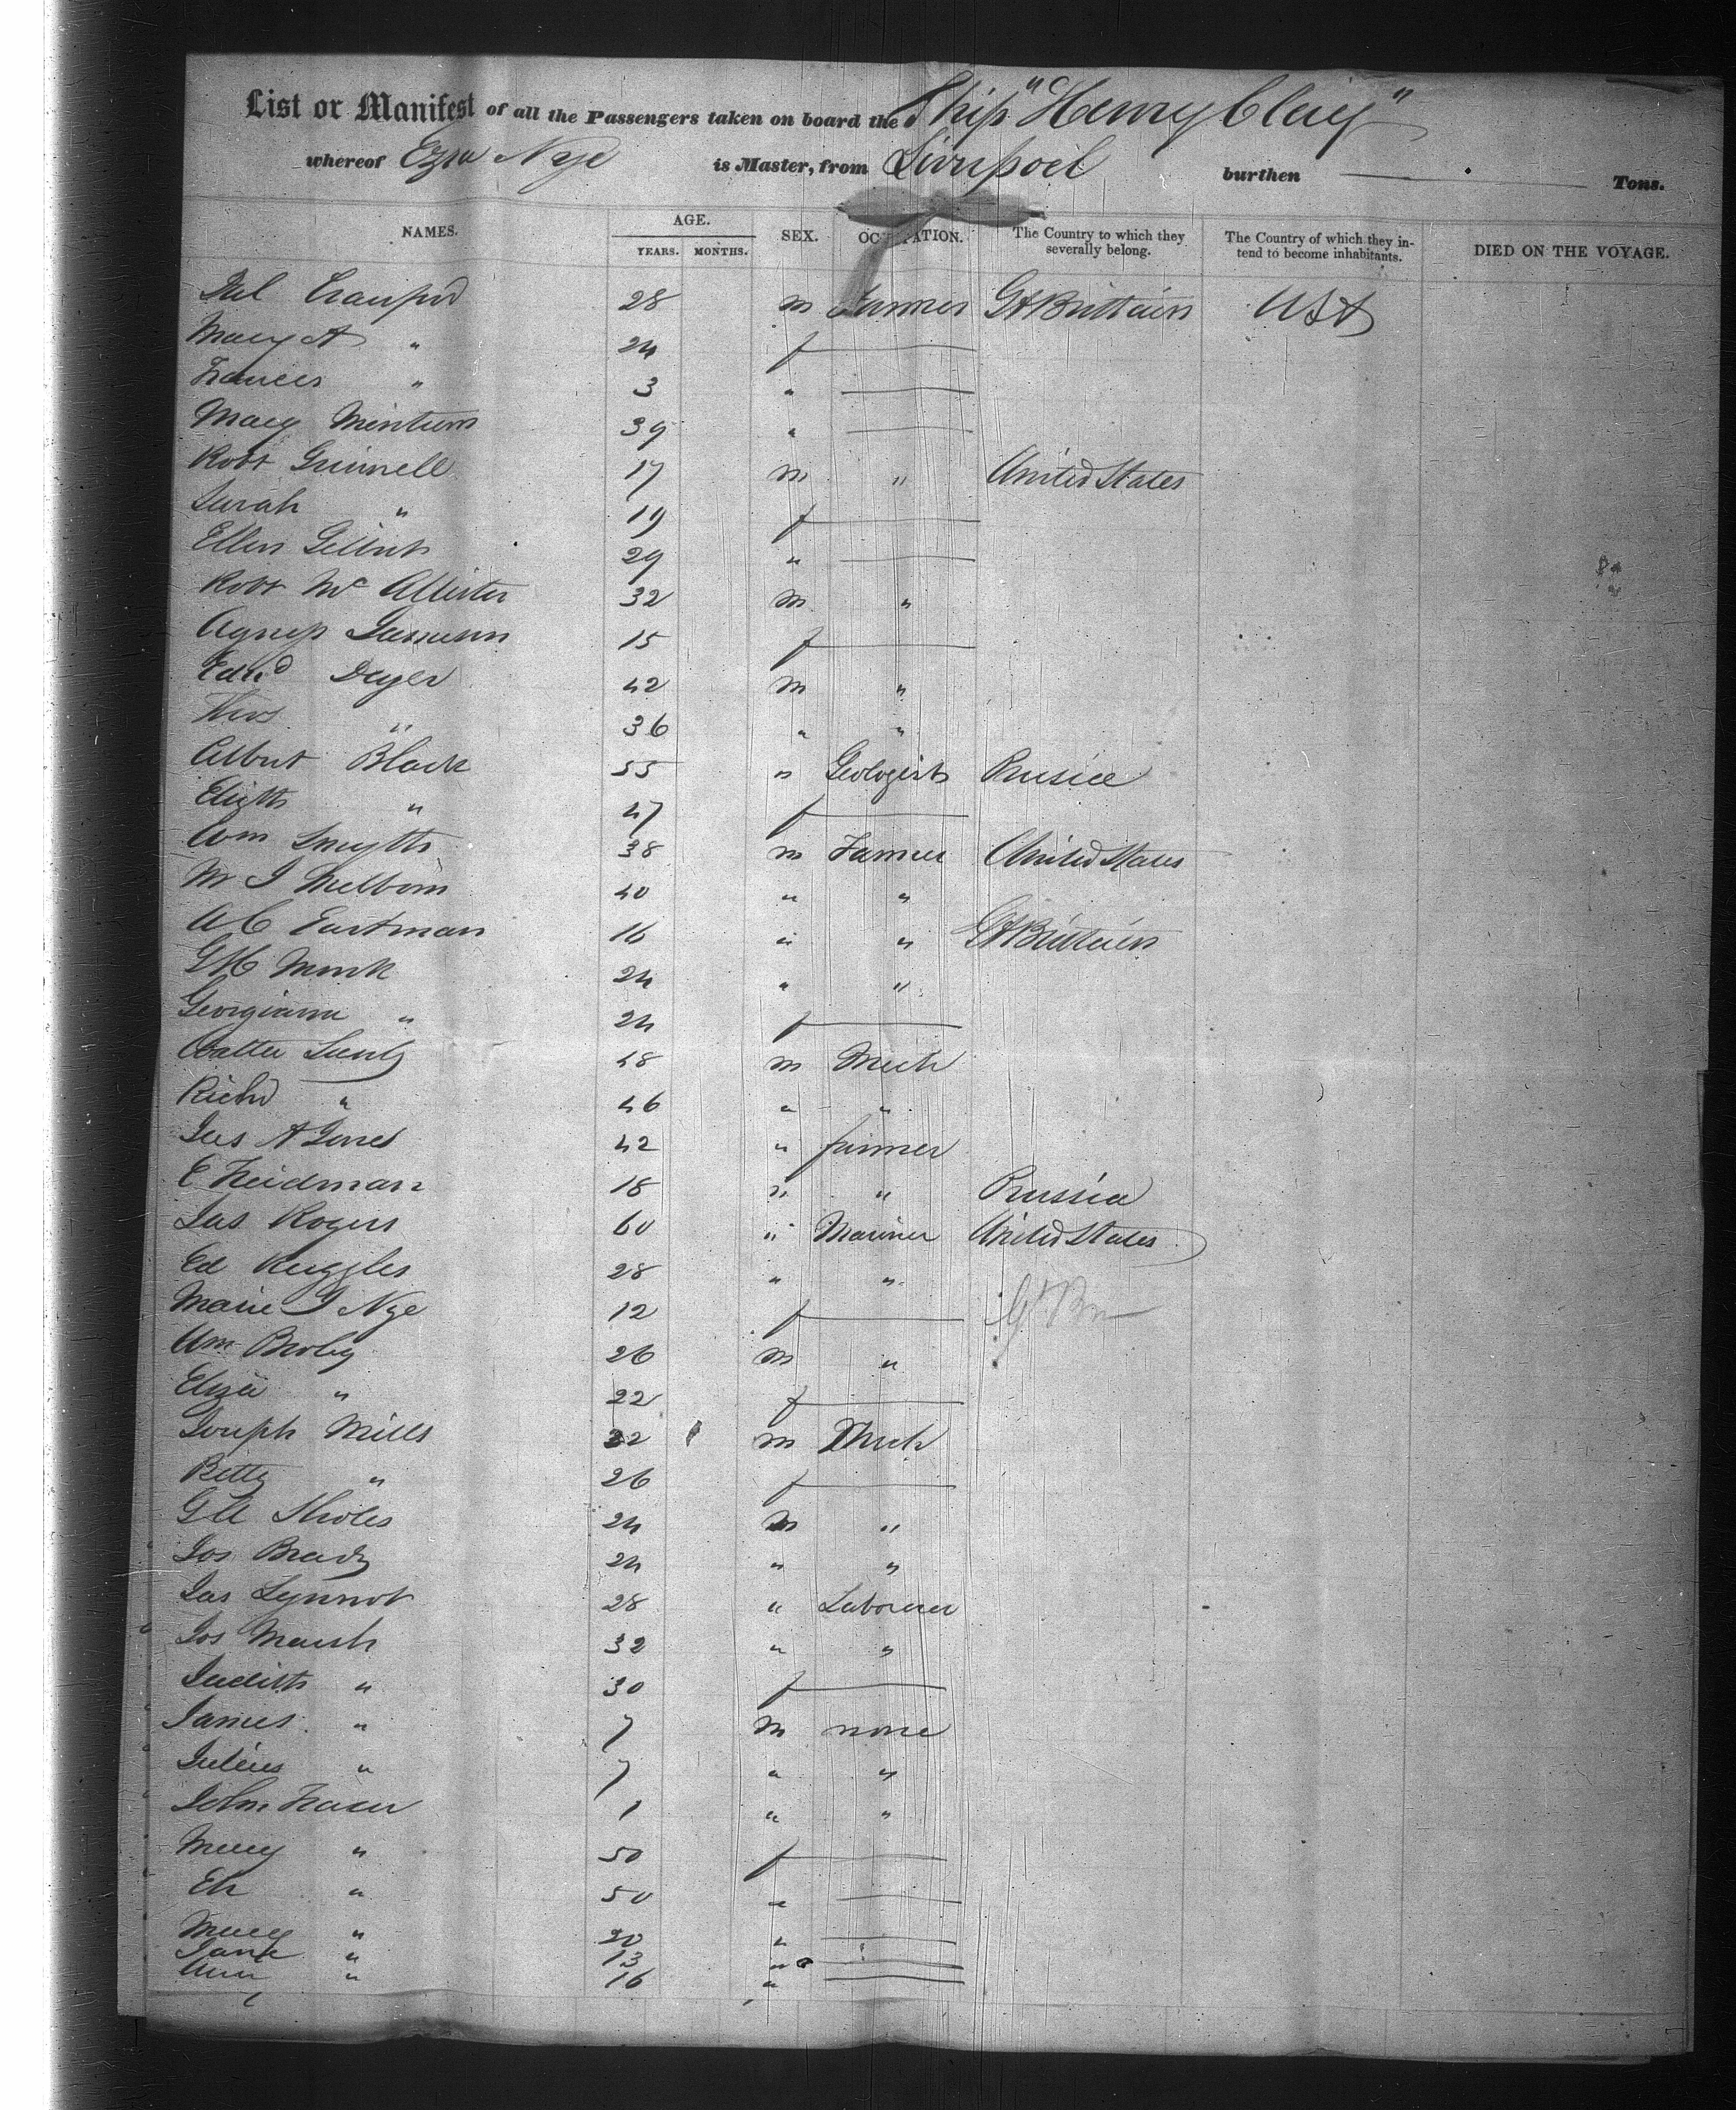 List or Manifest of all the Passengers taken on board the Ship "Henry Clay"
whereof Ezra Nye is Master, from Liverpool burthen — Tons.
NAMES. AGE. YEARS. MONTHS. SEX. OCCUPATION. The Country to which they severally belong. The Country of which they intend to become inhabitants. DIED ON THE VOYAGE.
28 m Farmer Gt Brittain USA
Mary A " 24 f —
Frances " 3 " —
Mary Minturn 39 " —
Robt Grinnell 17 m " United States
Sarah " 19 f —
Ellen 29 " —
Robt Mc Allister 32 m "
Agness 15 f —
Edwd Dyer 42 m "
Thos " 36 " "
Albert Black 55 " Geologist Prusia
Elizth " 47 f —
Wm Smyth 38 m Farmer United States
M I Melborn 40 " "
A C Eastman 16 " " Gt Brittain
G H Monk 24 " "
Georgiana " 24 f —
Walter 48 m Mech
Richd " 46 " "
Jas A Jones 42 " farmer
E Freidman 18 " " Prussia
Jas Rogers 60 " Mariner United States
Ed Ruggles 28 " "
Marie I Nye 12 f — Gt Br
Wm 26 m "
Eliza " 22 f —
Joseph Mills 32 m Mech
Betty " 26 f —
G A Sholes 24 m "
Jos Brady 24 " "
Jas Lynnot 28 " Laborer
Jos Marsh 32 " "
Judith " 30 f —
James " 7 m none
Julius " 7 " "
John Fraser 1 " "
Mary " 50 f —
Eli " 50 " —
Mary " 20 " —
Jane " 13 " —
Ann " 16 " —